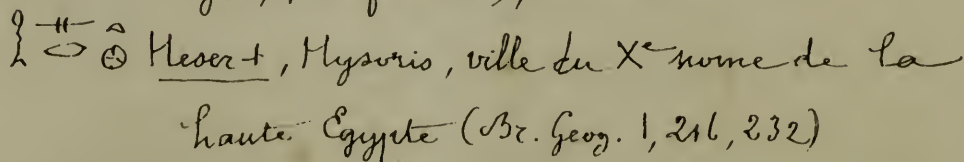 𓎛𓊃𓂋𓏏𓊖 Heser-t, Hysoris, ville du Xᵉ nome de la
haute Egypte (Br. Geog. 1, 216, 232)